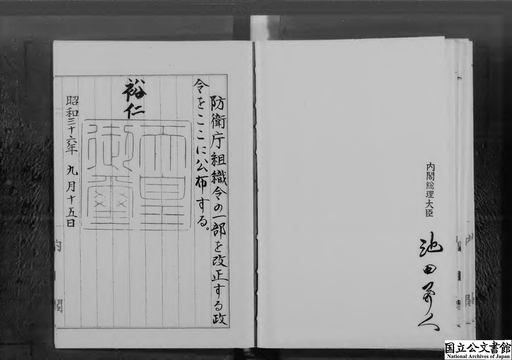 防衛庁組織令の一部を改正する政
令をここに公布する。
裕仁
天皇
御璽
昭和三十六年九月十五日
内閣総理大臣
池田勇人
国立公文書館
National Archives of Japan